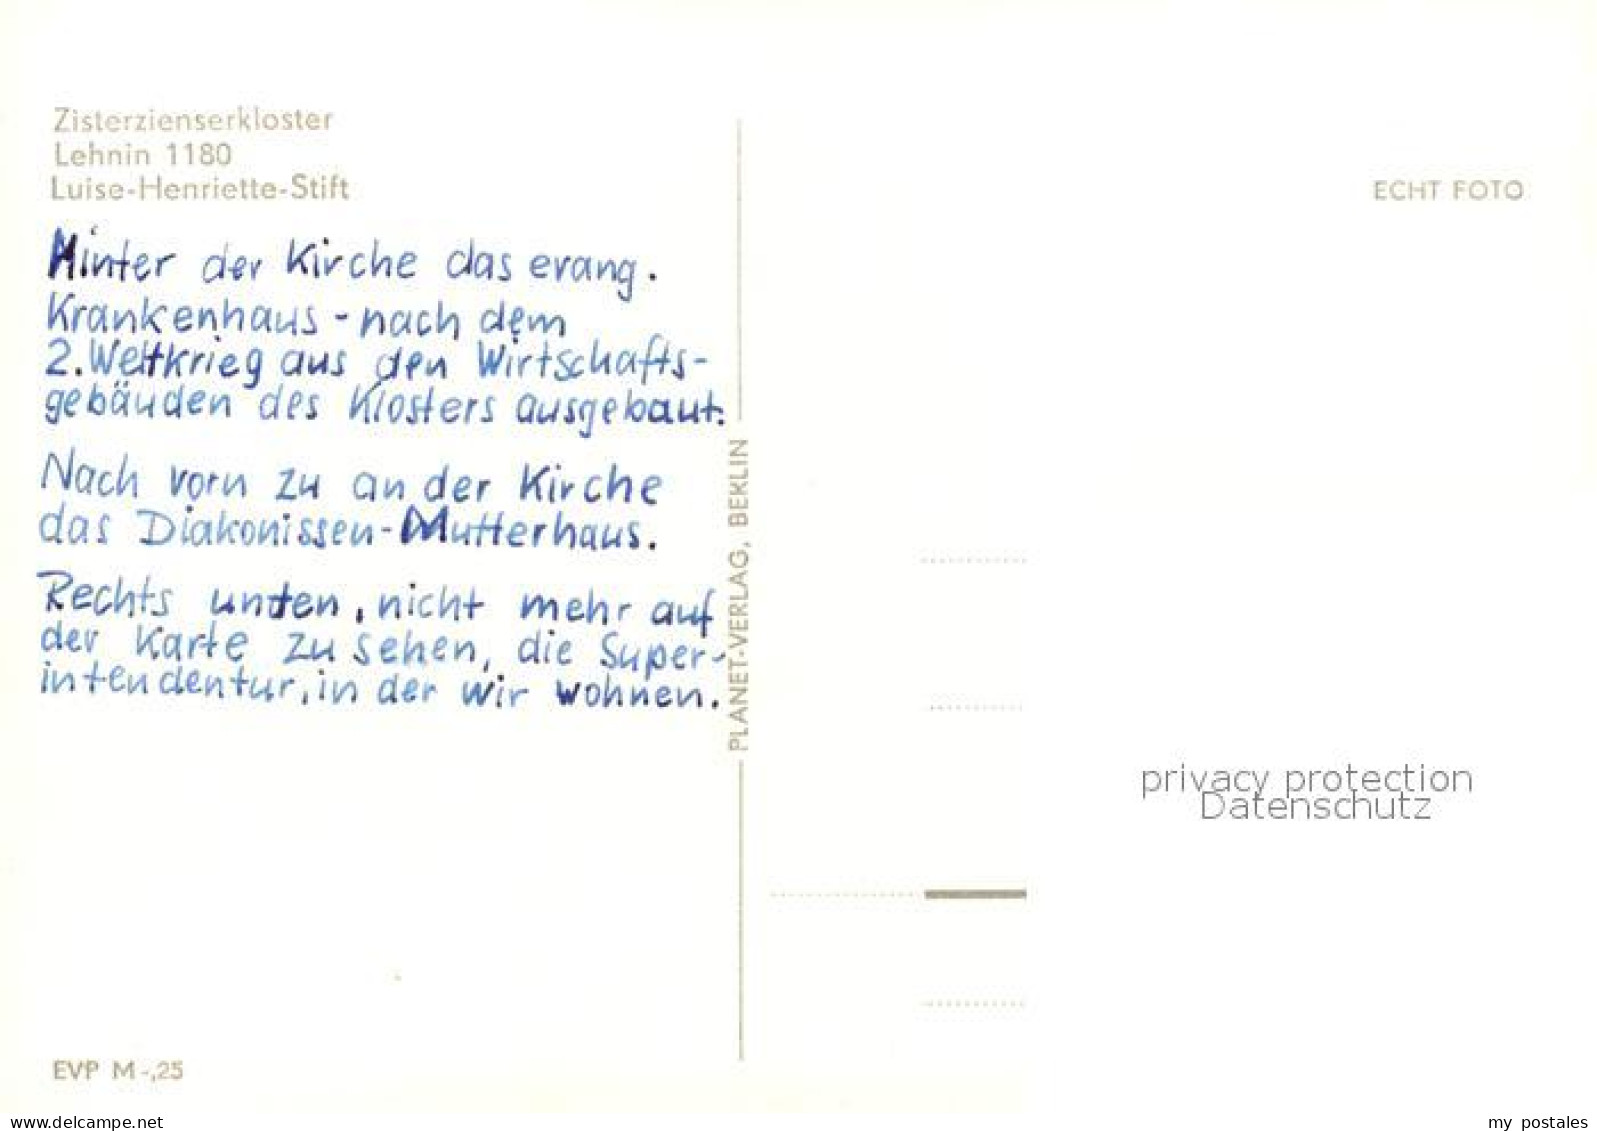 Zisterzienserkloster
Lehnin 1180
Luise-Henriette-Stift
Hinter der Kirche das evang.
Krankenhaus - nach dem
2. Weltkrieg aus den Wirtschafts-
gebäuden des Klosters ausgebaut.
Nach vorn zu an der Kirche
das Diakonissen-Mutterhaus.
Rechts unten, nicht mehr auf
der Karte zu sehen, die Super-
intendentur, in der wir wohnen.
EVP M -,25
PLANET-VERLAG, BERLIN
ECHT FOTO
privacy protection
Datenschutz
www.delcampe.net
my postales